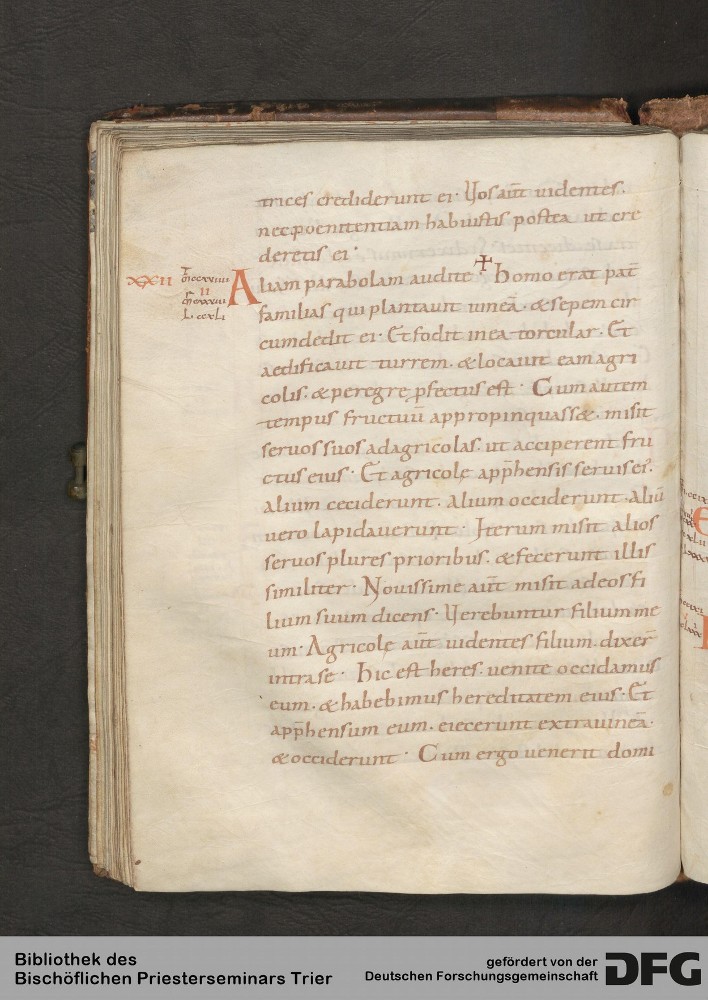 trices crediderunt ei· Uos aut̄ uidentes.
nec poenitentiam habuistis postea ut cre
deretis ei·
XXII
Aliam parabolam audite· ✝ homo erat pat̄
familias qui plantauit uineā· & sepem cir
cumdedit ei· Et fodit in ea torcular· Et
aedificauit turrem· & locauit eam agri
colis· & peregre ꝓfectus est· Cum autem
tempus fructuū appropinquass&· misit
seruos suos ad agricolas· ut acciperent fru
ctus eius· Et agricolę app̄hensis seruis ei᾽·
alium ceciderunt· alium occiderunt· aliū
uero lapidauerunt· Iterum misit alios
seruos plures prioribus· & fecerunt illis
similiter· Nouissime aut̄ misit ad eos fi
lium suum dicens· Uerebuntur filium me
um· Agricolę aut̄ uidentes filium· dixer̄
intra se· hic est heres· uenite occidamus
eum· & habebimus hereditatem eius· Et
app̄hensum eum· eiecerunt extra uineā·
& occiderunt· Cum ergo uenerit domi
Bibliothek des
Bischöflichen Priesterseminars Trier
gefördert von der
Deutschen Forschungsgemeinschaft
DFG